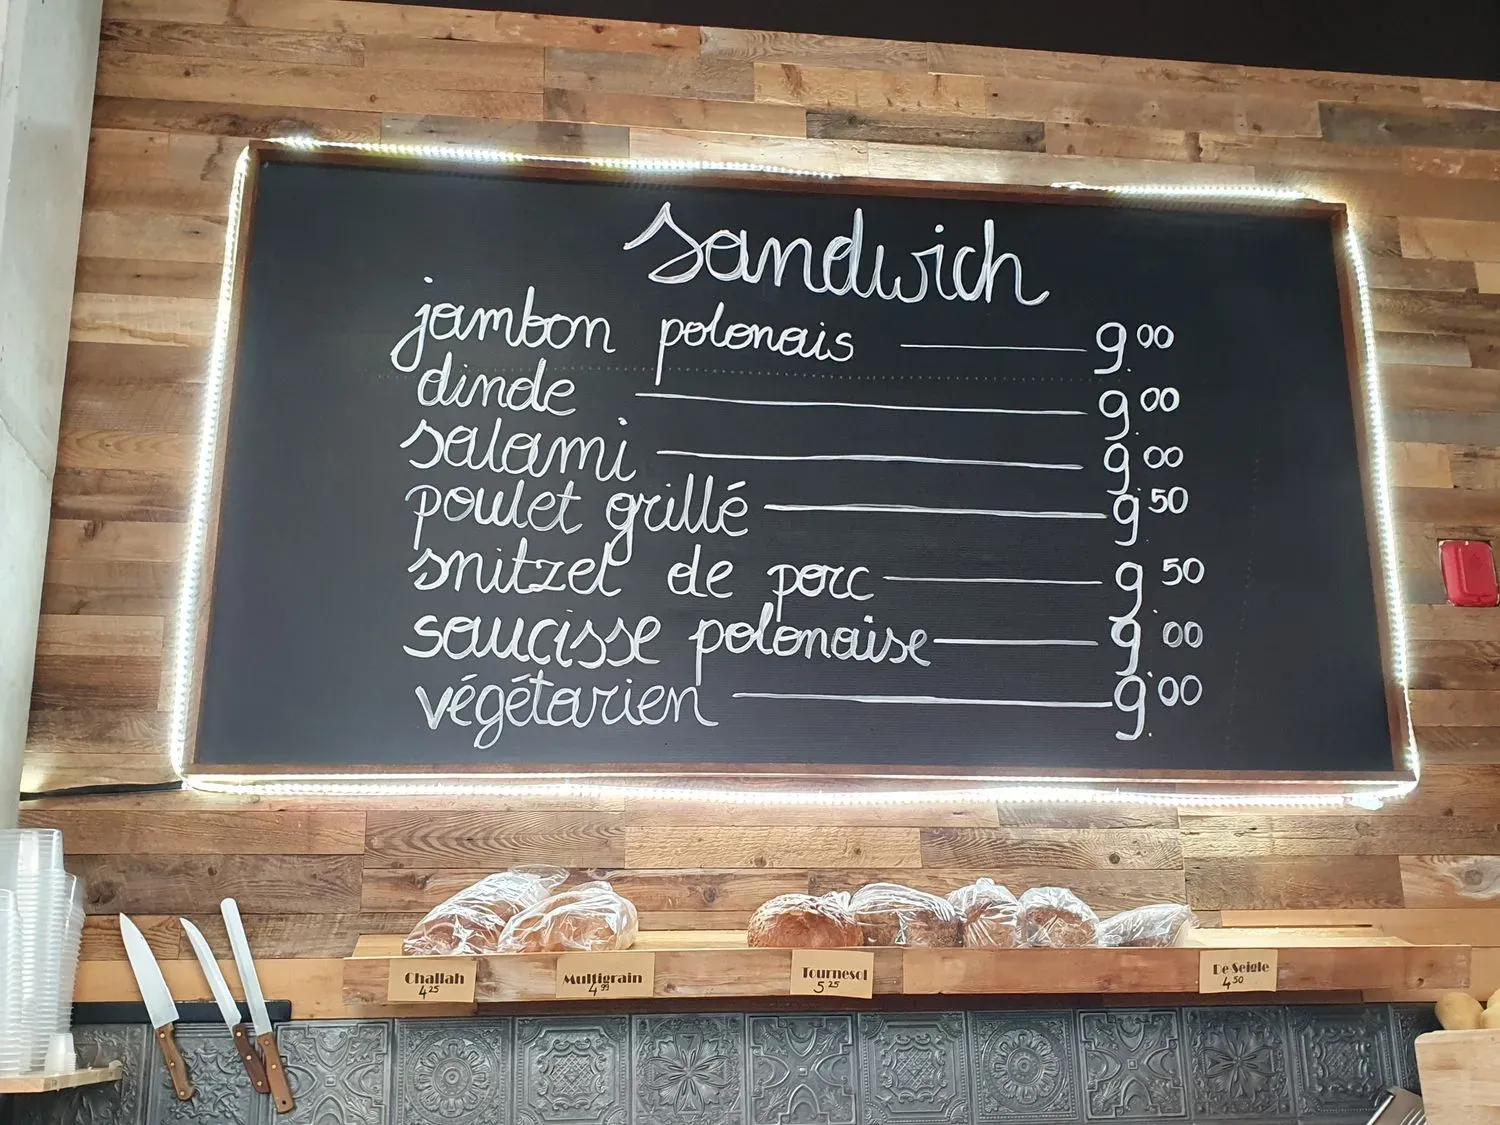 sandwich
jambon polonais 9.00
dinde 9.00
salami 9.00
poulet grillé 9.50
snitzel de porc 9.50
saucisse polonaise 9.00
végétarien 9.00
Challah
4 25
Multigrain
4 99
Tournesol
5 25
De Seigle
4 50